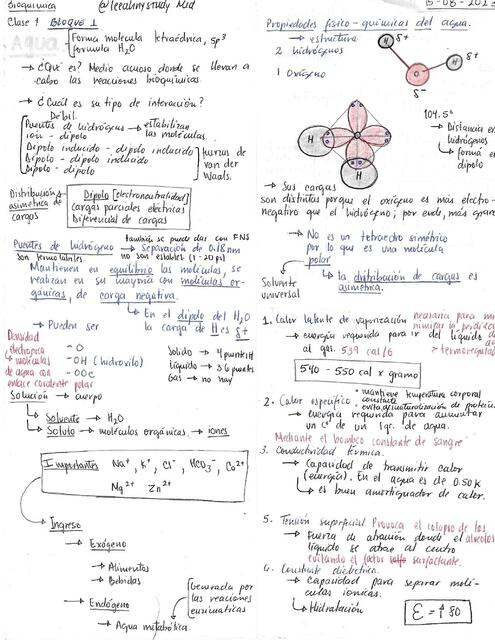 Bioquímica @leeahnystudy Med
Clase 1 BLOQUE 1
Agua
Forma molecula tetraédrica, sp³
formula H₂O
→ ¿Qué es? Medio acuoso donde se llevan a
cabo las reacciones bioquímicas.
→ ¿Cuál es su tipo de interacción?
Débil.
Puentes de hidrógeno → estabilizan
ion - dipolo las moléculas.
Dipolo inducido - dipolo inducido
Dipolo - dipolo inducido
Dipolo - dipolo
fuerzas de
van der
Waals.
Distribución
asimetrica de
cargas
Dipolo [electroneutralidad]
cargas parciales eléctricas
Diferencial de cargas
también se puede dar con FNS
Puentes de hidrógeno → Separación de 0.18 nm
son termolabiles no son estables (1-20 ps)
Mantienen en equilibrio las moléculas, se
realizan en su mayoría con moléculas or-
gánicas, de carga negativa.
↳ En el dipolo del H₂O
la carga de H es δ+
→ Pueden ser
Densidad
electronica
moléculas
de agua con
enlace covalente polar
- O
- OH (hidroxilo)
- OOC
Solido → 4 puente H
líquido → 3.6 puentes
Gas → no hay
Solución → cuerpo
↳ Solvente → H₂O
↳ Soluto → moléculas orgánicas. → iones
Importantes Na⁺, K⁺, Cl⁻, HCO₃⁻, Ca²⁺
Mg²⁺ Zn²⁺
↳ Ingreso
→ Exógeno
→ Alimentos
→ Bebidas
→ Endógeno
→ Agua metabólica.
Generada por
las reaciones
enzimaticas
15-08-202
Propiedades físico-químicas del agua.
→ estructura
2 hidrógenos
1 Oxígeno
H δ+
H δ+
O
δ-
H
H
104.5°
→ Distancia e
hidrógenos
↳ forma e
dipolo
→ Sus cargas
son distintas porque el oxígeno es más electro-
negativo que el hidrógeno; por ende, más gran
→ No es un tetraedro simétrico
por lo que es una molécula
polar
Solvente
universal
↳ la distribución de cargas es
asimetrica.
1. Calor latente de vaporización necesaria para
→ energía requerida para ir del líquido
al gas. 539 cal/g → termoregula
540 - 550 cal x gramo
2. Calor específico • mantiene temperatura corporal
constante
• evita desnaturalización de proteín
→ energía requerida para aumentar
un C° de un 1gr. de agua.
Mediante el bombeo constante de sangre
3. Conductividad térmica.
→ Capacidad de transmitir calor
(energía). En el agua es de 0.50 K
→ es buen amortiguador de calor.
5. Tensión superficial. Provoca el colapso de los
alveolos
→ Fuerza de atración donde el
líquido se atrae al centro
evitando el factor surfactante.
6. Constante dieléctrica.
→ Capacidad para separar molé-
culas ionicas.
↳ Hidratación
ε = ↑ 80